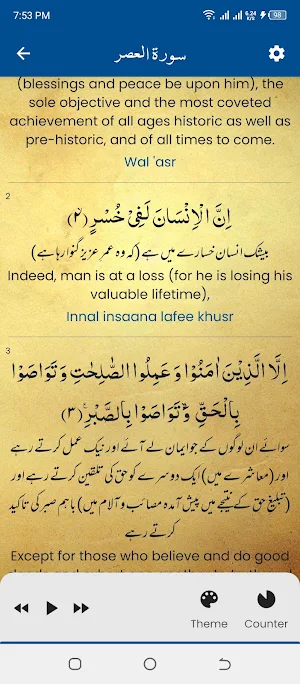 7:53 PM
6.24 K/s
98
سورة العصر
(blessings and peace be upon him), the
sole objective and the most coveted
achievement of all ages historic as well as
pre-historic, and of all times to come.
Wal 'asr
2
اِنَّ الْاِنْسَانَ لَفِیْ خُسْرٍ ﴿۲﴾
بیشک انسان خسارے میں ہے (کہ وہ عمرِ عزیز گنوا رہا ہے)
Indeed, man is at a loss (for he is losing his
valuable lifetime),
Innal insaana lafee khusr
3
اِلَّا الَّذِیْنَ اٰمَنُوْا وَ عَمِلُوا الصّٰلِحٰتِ وَ تَوَاصَوْا
بِالْحَقِّ ۙ۬ وَ تَوَاصَوْا بِالصَّبْرِ ﴿۳﴾
سوائے ان لوگوں کے جو ایمان لے آئے اور نیک عمل کرتے رہے
اور (معاشرے میں) ایک دوسرے کو حق کی تلقین کرتے رہے اور
(تبلیغِ حق کے نتیجے میں پیش آمدہ مصائب و آلام میں) باہم صبر کی تاکید
کرتے رہے
Except for those who believe and do good
Theme
Counter